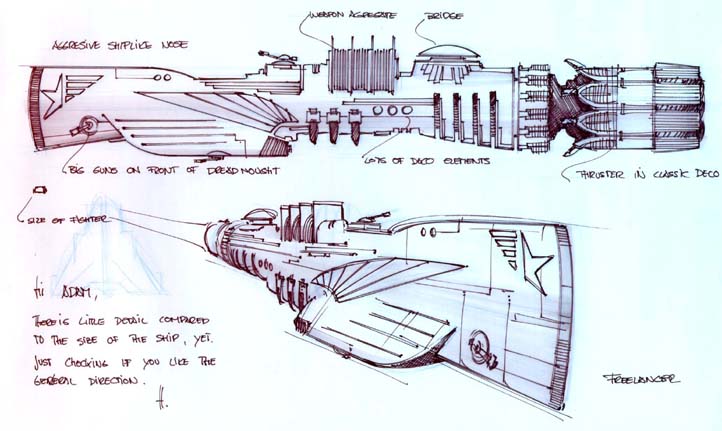 WEAPON AGREGATE
BRIDGE
AGGRESIVE SHIPLIKE NOSE
BIG GUNS ON FRONT OF DREADNOUGHT
LOTS OF DECO ELEMENTS
THRUSTER IN CLASSIC DECO
SIZE OF FIGHTER
Hi ADAM,
THERE IS LITLE DETAIL COMPARED
TO THE SIZE OF THE SHIP, YET.
JUST CHECKING IF YOU LIKE THE
GENERAL DIRECTION.
H.
FREELANCER